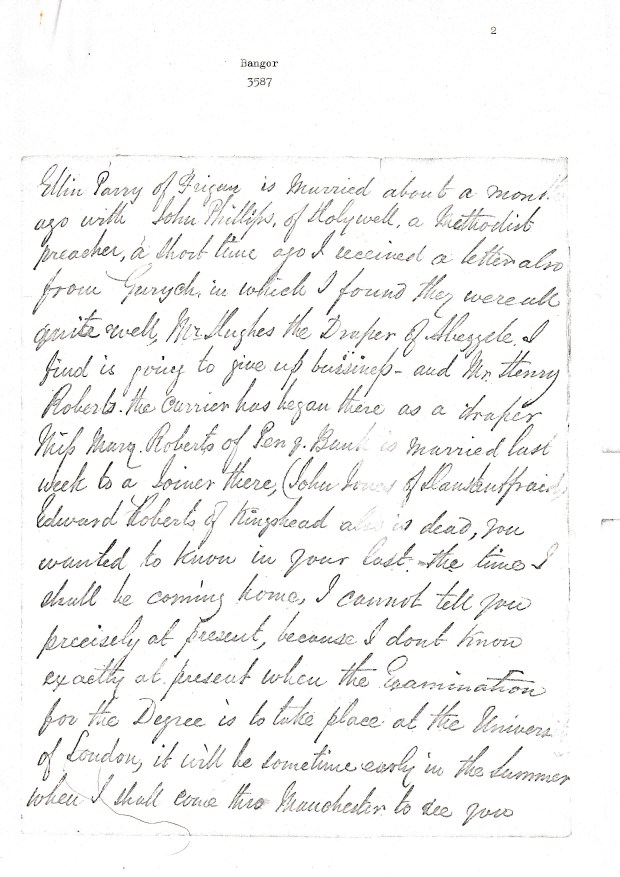 2
Bangor
3587
Ellin Parry of Frigan is Married about a mont
ago with John Phillips, of Holywell, a Methodist
preacher, a short time ago I received a letter also
from Gwrych, in which I found they were all
quite well, Mr Hughes the Draper of Abergele I
find is going to give up bussiness - and Mr. Henry
Roberts. the carrier has began there as a draper
Miss Mary Roberts of Pen y. Bank is married last
week to a Joiner there, (John Jones of Llansantffraid)
Edward Roberts of Kingshead also is dead, you
wanted to know in your last the time I
shall be coming home, I cannot tell you
precisely at present, because I dont know
exactly at present when the Examination
for the Degree is to take place at the Univers
of London, it will be sometime early in the Summer
when I shall come thro Manchester to see you